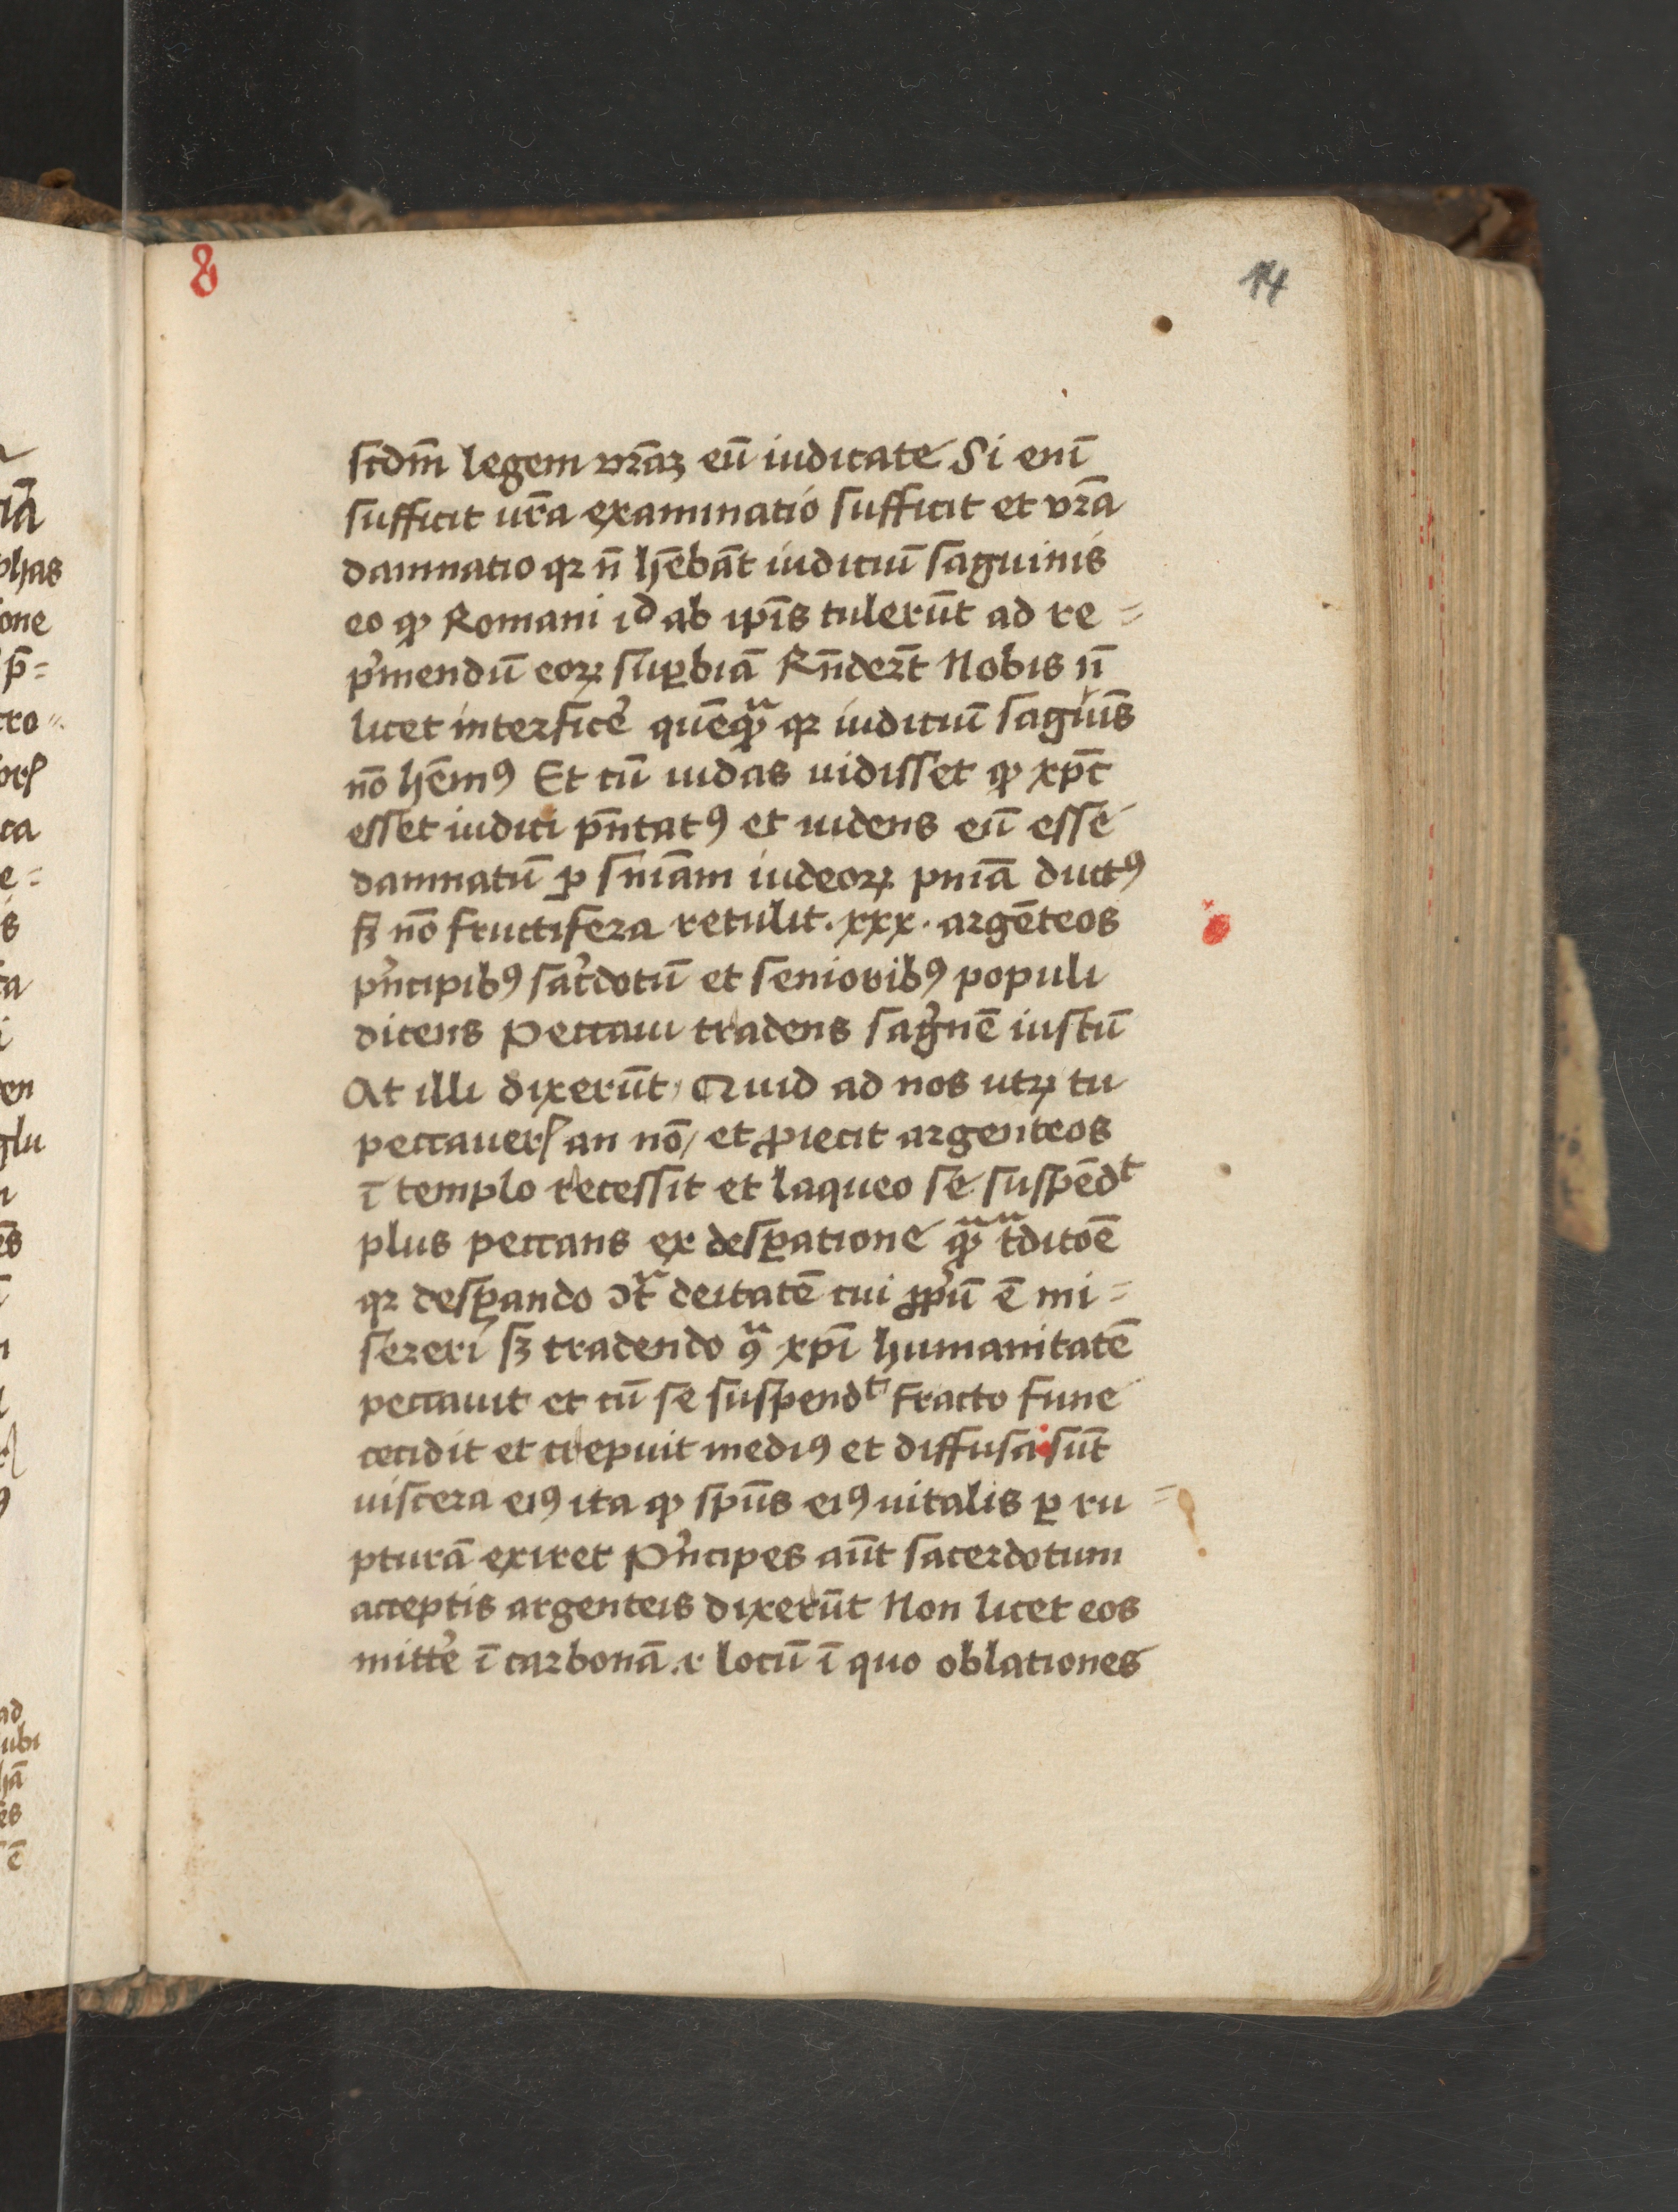 8
14
scdm̄ legem vr̄aꝫ eū iudicate Si enī
sufficit ur̄a examinatio sufficit et vr̄a
damnatio qꝛ n̄ hēbāt iudiciū sāguinis
eo ꝙ Romani id ab ip̄is tulerūt ad re =
p̓mendū eoꝝ suꝑbiā Rn̄der̄t Nobis n̄
licet interfice̓ quēqᷓ qꝛ iudiciū sāgiuīs
nō hēmꝰ Et cū iudas uidisset ꝙ xp̄c
esset iudici pn̄tatꝰ et uidens eū esse
damnatū ꝑ sniām iudeoꝝ pniā ductꝰ
sꝫ nō fructifera retulit · xxx · argēteos
p̓ncipibꝰ sac̓dotū et senioribꝰ populi
dicens Peccaui tradens sāg̓nē iustū
At illi dixerūt / Quid ad nos utꝝ tu
peccauerꝭ an nō / et ꝓiecit argenteos
ī templo recessit et laqueo se suspēdᵗ
plus peccans ex desꝑatione qᷓ tᷓditoē
qꝛ desꝑando ↄtᷓ deitatē cui ꝓpͥū ē mi =
sereri sꝫ tradendo ꝯᷓ xp̄i humanitatē
peccauit et cū se suspendᵗ fracto fune
cecidit et crepuit mediꝰ et diffusa sūt
uiscera eiꝰ ita ꝙ spūs eiꝰ uitalis ꝑ ru =
pturā exiret P̓ncipes aūt sacerdotum
acceptis argenteis dixerūt Non licet eos
mitte̓ ī carbonā .r locū ī quo oblationes